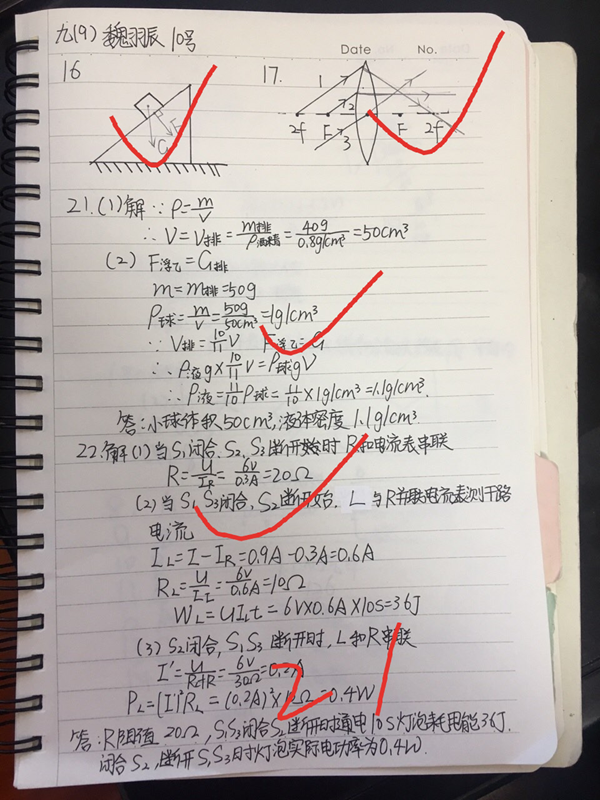 九(9) 魏羽辰 10号
Date No.
16
17.
1
2
3
2f F F 2f
F
G
21.(1)解∵ρ=m/V
∴V=V排=m排/ρ=40g/0.8g/cm³=50cm³
(2) F浮乙=G排
m=m排=50g
ρ球=m/V=50g/50cm³=1g/cm³
∵V排=10/11V F浮乙=G
∴ρ液g×10/11V=ρ球gV
∴ρ液=11/10ρ球=11/10×1g/cm³=1.1g/cm³.
答:小球体积50cm³,液体密度1.1g/cm³
22.解(1)当S₁闭合,S₂,S₃断开时R和电流表串联
R=U/IR=6V/0.3A=20Ω
(2)当S₁S₃闭合,S₂断开,L与R并联电流表测干路
电流
IL=I-IR=0.9A-0.3A=0.6A
RL=U/IL=6V/0.6A=10Ω
WL=UILt=6V×0.6A×10s=36J
(3)S₂闭合,S₁S₃断开时,L和R串联
I'=U/R+R=6V/30Ω=0.2A
PL=(I')²RL=(0.2A)²×10Ω=0.4W
答:R阻值20Ω,S₁S₃闭合S₂断开时通电10s灯泡耗电能36J.
闭合S₂,断开S₁S₃时灯泡实际电功率为0.4W.
21